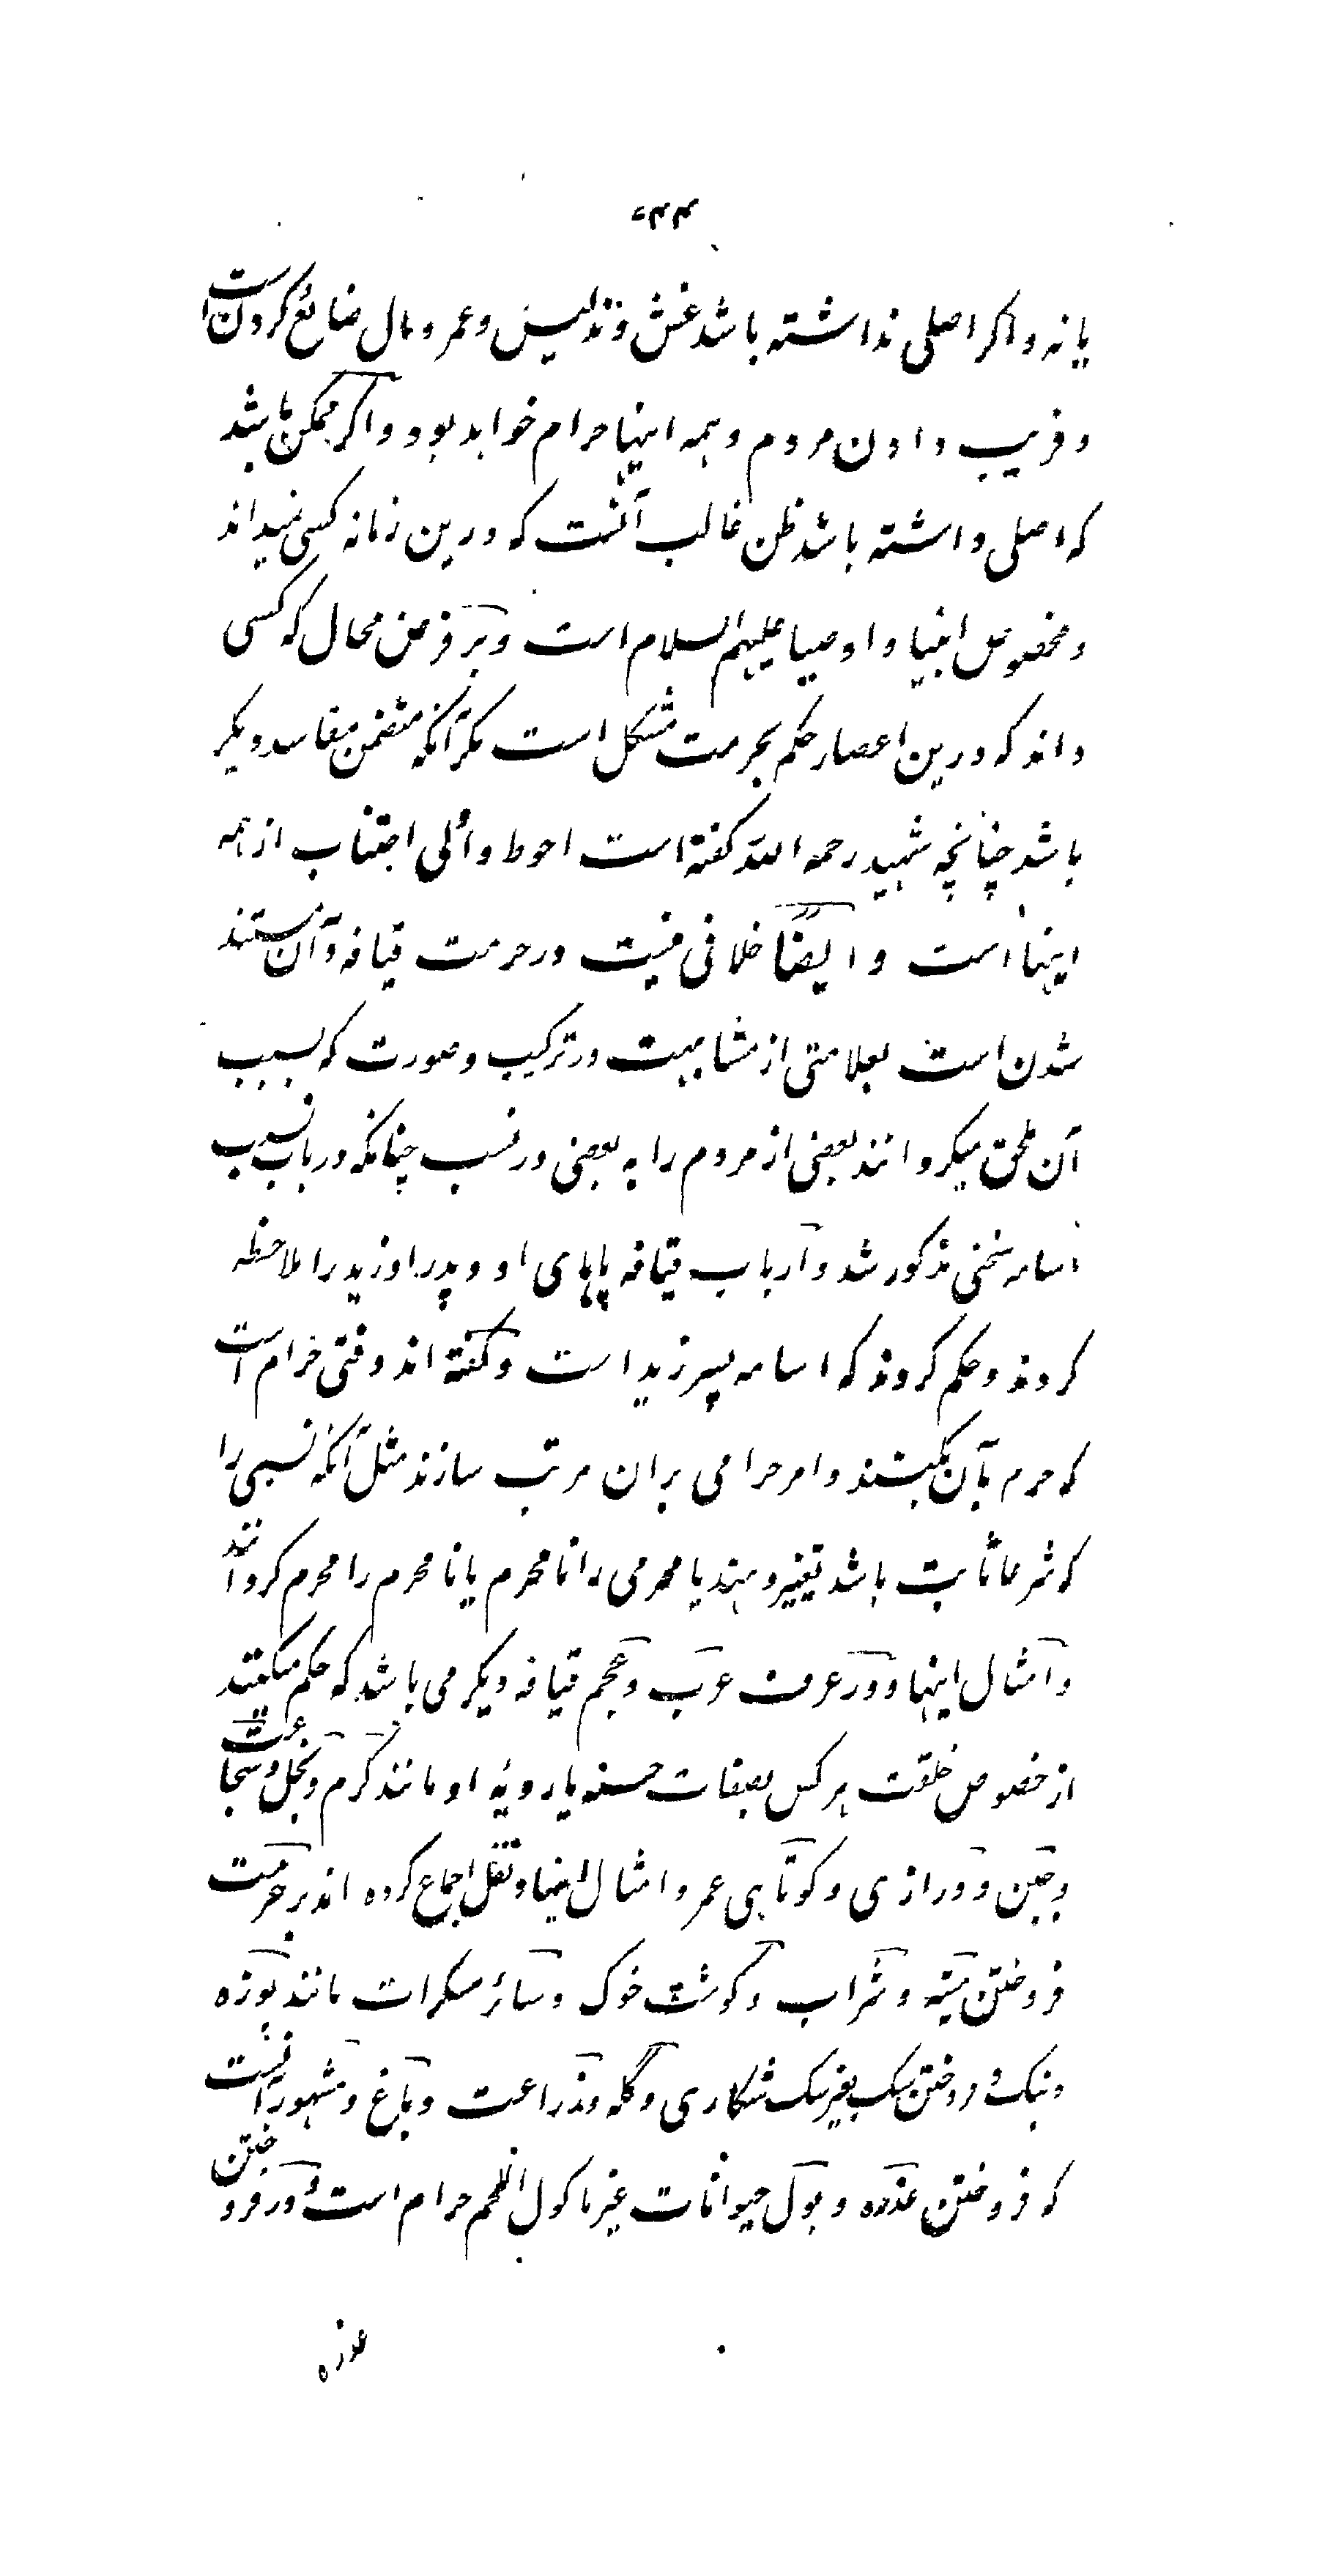 یا نه و اکر اصلی نداشته باشد غش و تدلیس و عمر و مال ضائع کردن است
و فریب دادن مردم و همه اینها حرام خواهد بود و اکر ممکن باشد
که اصلی داشته باشد ظن غالب آنست که درین زمانه کسی نمیداند
و مخصوص انبیا و اوصیا علیهم السلام است و بر فرض محال که کسی
داند که درین اعصار حکم بحرمت مشکل است مکر آنکه متضمن مفاسد دیکر
باشد چنانچه شهید رحمه الله کفته است احوط و اولی اجتناب از همه
اینها است و ایضا خلافی نیست در حرمت قیافه و آن مستند
شدن است بعلامتی از مشابهت در ترکیب و صورت که بسبب
آن ملحق میکردانند بعضی از مردم را به بعضی در نسب چنانکه در باب نسب
اسامه سخنی مذکور شد و ارباب قیافه پاهای او و پدر او زید را ملاحظه
کردند و حکم کردند که اسامه پسر زید است و کفته اند وقتی حرام است
که جزم بآن بکنند و امر حرامی بران مرتب سازند مثل آنکه نسبی را
که شرعا ثابت باشد تغییر دهند یا محرمی را نا محرم یا نا محرم را محرم کردانند
و امثال اینها و در عرف عرب و عجم قیافه دیکر می باشد که حکم میکنند
از خصوص خلقت هر کس بصفات حسنه یا ردیهٔ او مانند کرم و بخل و شجاعت
و جبن و درازی و کوتاهی عمر و امثال اینها و نقل اجماع کرده اند بر حرمت
فروختن میته و شراب و کوشت خوک و سائر مسکرات مانند بوزه
و بنک و فروختن سک بغیر سک شکاری و کله و زراعت و باغ و مشهور آنست
که فروختن عذره و بول حیوانات غیر ماکول اللحم حرام است و در فروختن
عذره